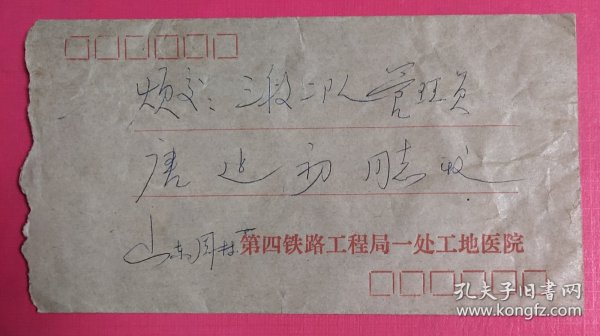 烦交：三段二队管理员
唐建初同志收
山东周村
第四铁路工程局一处工地医院
孔夫子旧书网
www.kongfz.com